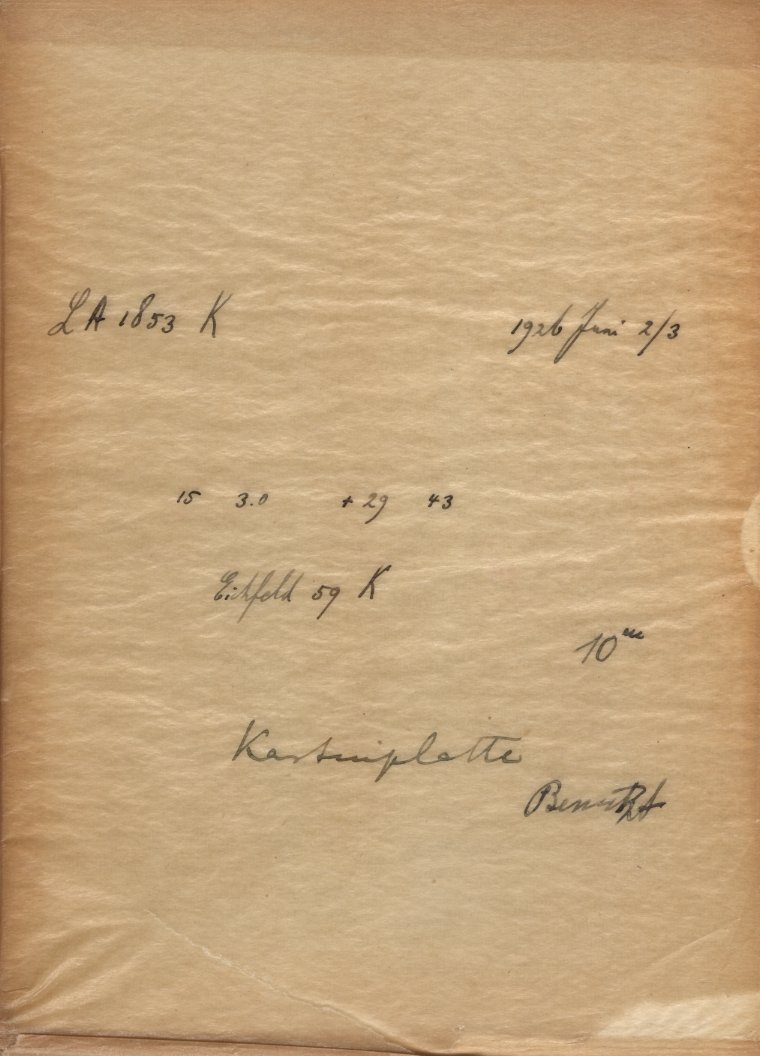 LA 1853 K 1926 Juni 2/3
15 3.0 +29 43
Eichfeld 59 K
10ᵐ
Kapteynplatte
Benutzt